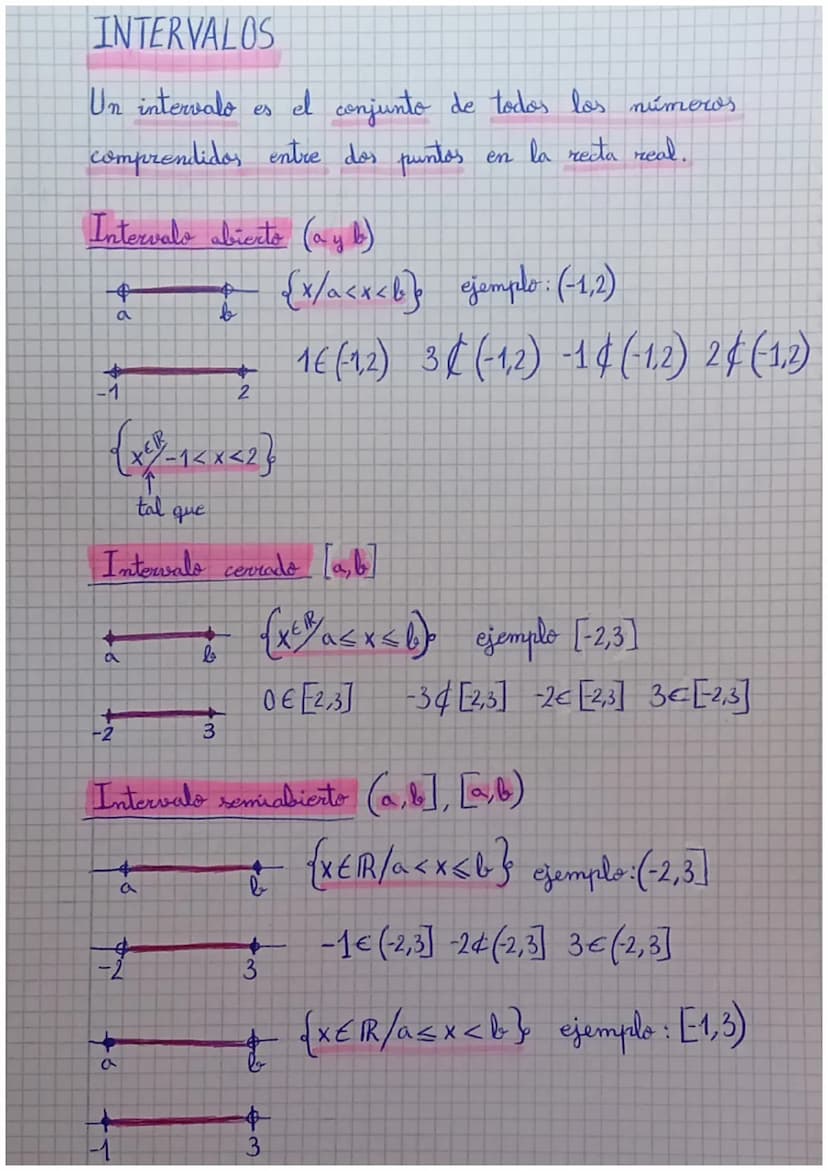 INTERVALOS
Un intervalo es el conjunto de todos los números
comprendidos entre dos puntos en la recta real.
Intervalo abierto (a y b)
a b {x/a<x<b} ejemplo: (-1,2)
-1 2 1∈(-1,2) 3∉(-1,2) -1∉(-1,2) 2∉(-1,2)
{x∈ℝ/-1<x<2}
↑
tal que
Intervalo cerrado [a,b]
a b {x∈ℝ/a≤x≤b} ejemplo [-2,3]
-2 3 0∈[-2,3] -3∉[-2,3] -2∈[-2,3] 3∈[-2,3]
Intervalo semiabierto (a,b], [a,b)
a b {x∈ℝ/a<x≤b} ejemplo: (-2,3]
-2 3 -1∈(-2,3] -2∉(-2,3] 3∈(-2,3]
a b {x∈ℝ/a≤x<b} ejemplo: [-1,3)
-1 3